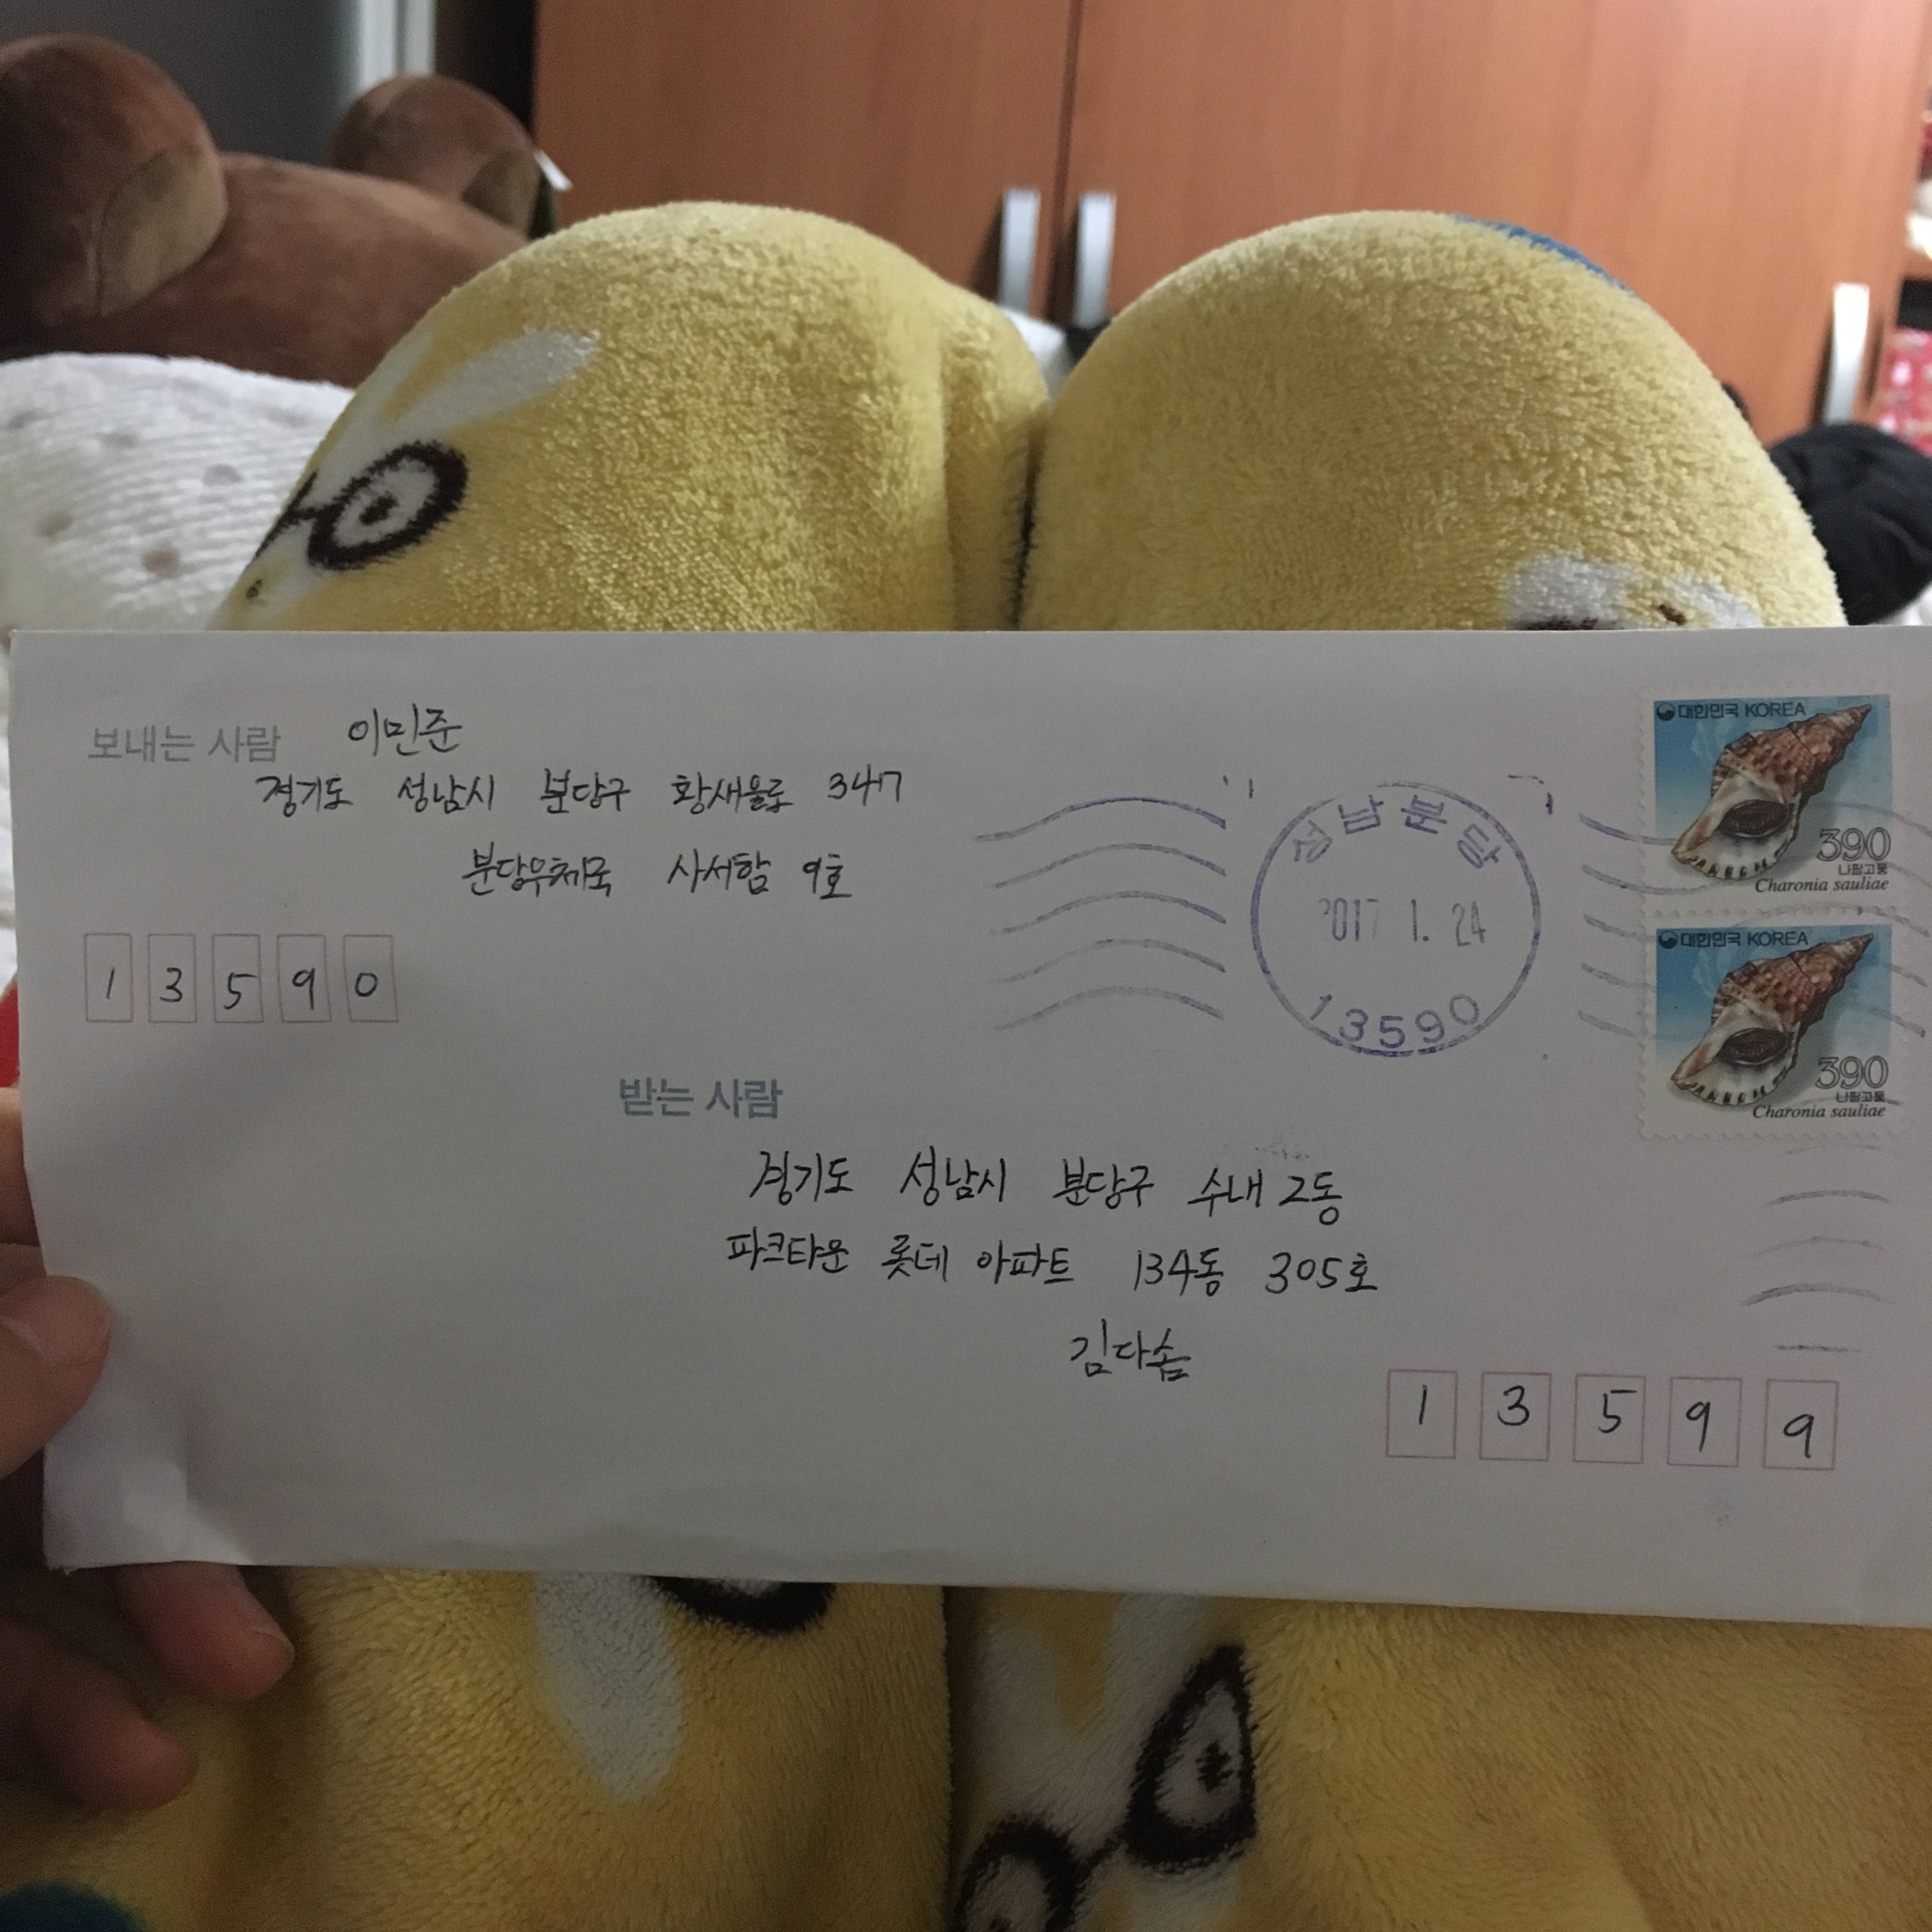 보내는 사람 이민준
경기도 성남시 분당구 황새울로 347
분당우체국 사서함 9호
13590
성남분당
2017 1. 24
13590
대한민국 KOREA
390
나팔고둥
Charonia sauliae
대한민국 KOREA
390
나팔고둥
Charonia sauliae
받는 사람
경기도 성남시 분당구 수내2동
파크타운 롯데 아파트 134동 305호
김다솜
13599